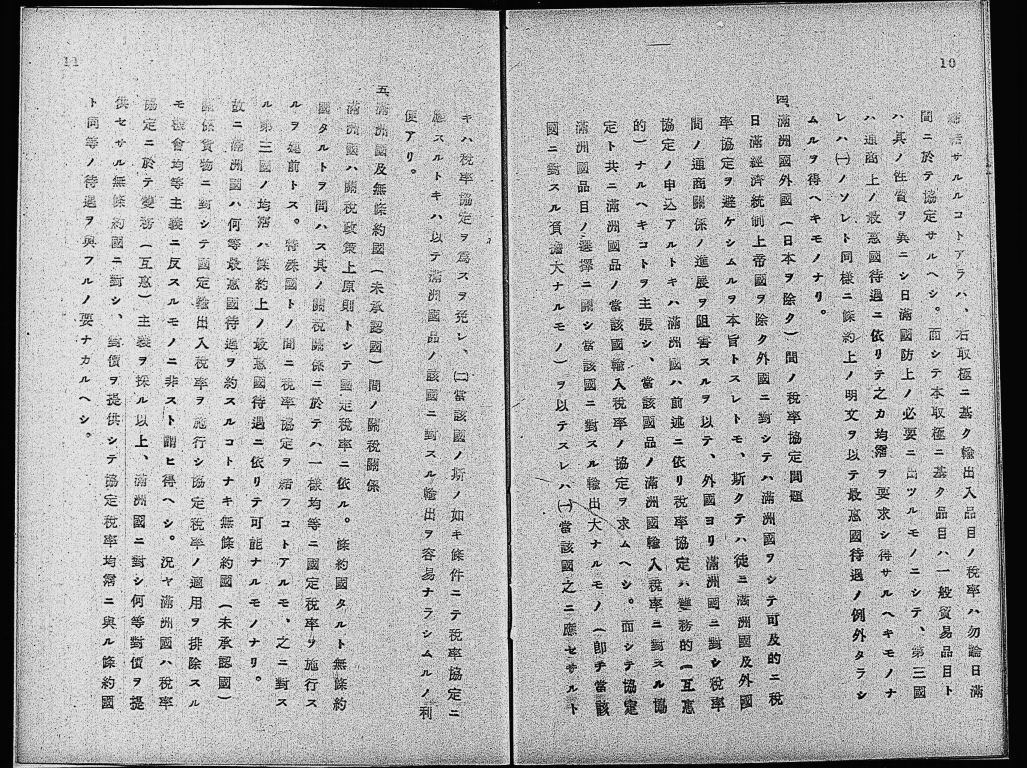 10
締結サルルコトアラハ、右取極ニ基ク輸出入品目ノ税率ハ勿論日滿
間ニ於テ協定サルヘシ。而シテ本取極ニ基ク品目ハ一般貿易品目ト
ハ其ノ性質ヲ異ニシ日滿國防上ノ必要ニ出ツルモノニシテ、第三國
ハ通商上ノ最惠國待遇ニ依リテ之カ均霑ヲ要求シ得サルヘキモノナ
レハ㈠ノソレト同樣ニ條約上ノ明文ヲ以テ最惠國待遇ノ例外タラシ
ムルヲ得ヘキモノナリ。
四、滿洲國外國(日本ヲ除ク)間ノ税率協定問題
日滿經濟統制上帝國ヲ除ク外國ニ對シテハ滿洲國ヲシテ可及的ニ税
率協定ヲ避ケシムルヲ本旨トスレトモ、斯クテハ徒ニ滿洲國及外國
間ノ通商關係ノ進展ヲ阻害スルヲ以テ、外國ヨリ滿洲國ニ對シ税率
協定ノ申込アルトキハ滿洲國ハ前述ニ依リ税率協定ハ雙務的(互惠
的)ナルヘキコトヲ主張シ、當該國品ノ滿洲國輸入税率ニ對スル協
定ト共ニ滿洲國品ノ當該國輸入税率ノ協定ヲ求ムヘシ。而シテ協定
滿洲國品目ノ選擇ニ關シ當該國ニ對スル輸出大ナルモノ(卽チ當該
國ニ對スル負擔大ナルモノ)ヲ以テスレハ㈠當該國之ニ應セサルト
11
キハ税率協定ヲ爲スヲ免レ、㈡當該國ノ斯ノ如キ條件ニテ税率協定ニ
應スルトキハ以テ滿洲國品ノ該國ニ對スル輸出ヲ容易ナラシムルノ利
便アリ。
五、滿洲國及無條約國(未承認國)間ノ關税關係
滿洲國ハ關税政策上原則トシテ國定税率ニ依ル。條約國タルト無條約
國タルトヲ問ハス其ノ關税關係ニ於テハ一樣均等ニ國定税率ヲ施行ス
ルヲ建前トス。特殊國トノ間ニ税率協定ヲ締フコトアルモ、之ニ對ス
ル第三國ノ均霑ハ條約上ノ最惠國待遇ニ依リテ可能ナルモノナリ。
故ニ滿洲國ハ何等最惠國待遇ヲ約スルコトナキ無條約國(未承認國)
關係貨物ニ對シテ國定輸出入税率ヲ施行シ協定税率ノ適用ヲ排除スル
モ機會均等主義ニ反スルモノニ非スト謂ヒ得ヘシ。況ヤ滿洲國ハ税率
協定ニ於テ雙務(互惠)主義ヲ採ル以上、滿洲國ニ對シ何等對價ヲ提
供セサル無條約國ニ對シ、對價ヲ提供シテ協定税率均霑ニ與ル條約國
ト同等ノ待遇ヲ與フルノ要ナカルヘシ。